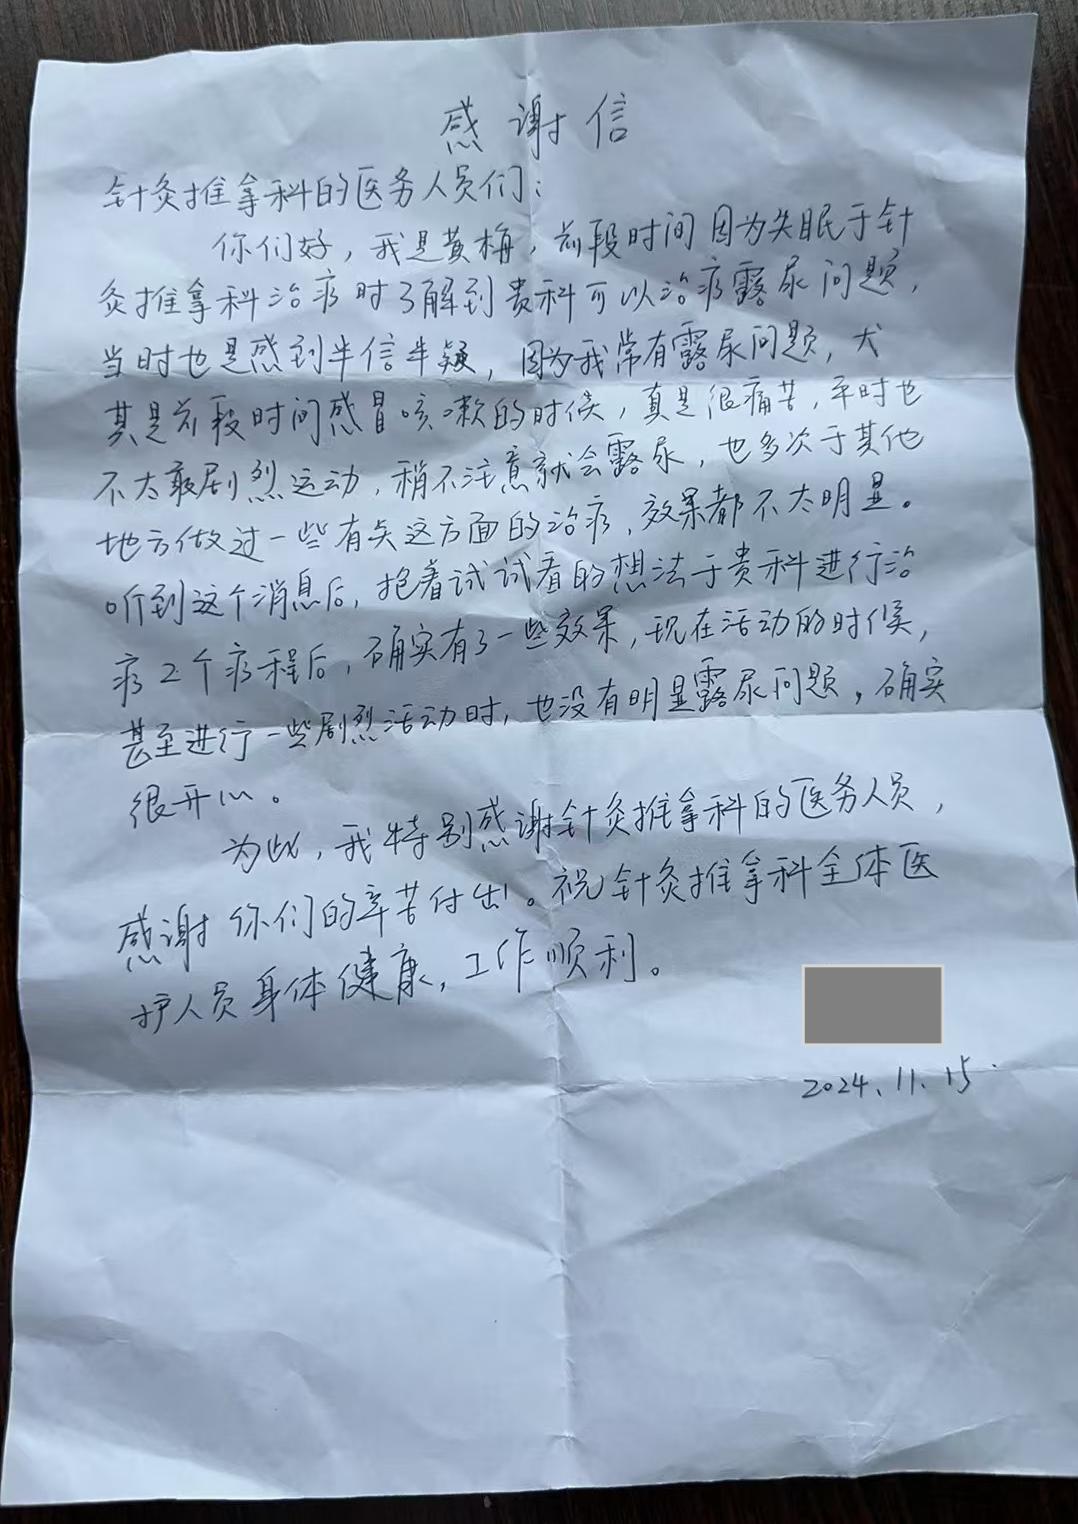 感谢信
针灸推拿科的医务人员们：
你们好，我是黄梅，前段时间因为失眠于针
灸推拿科治疗时了解到贵科可以治疗露尿问题，
当时也是感到半信半疑，因为我常有露尿问题，尤
其是前段时间感冒咳嗽的时候，真是很痛苦，平时也
不太敢剧烈运动，稍不注意就会露尿，也多次于其他
地方做过一些有关这方面的治疗，效果都不太明显。
听到这个消息后，抱着试试看的想法于贵科进行治
疗2个疗程后，确实有了一些效果，现在活动的时候，
甚至进行一些剧烈活动时，也没有明显露尿问题，确实
很开心。
为此，我特别感谢针灸推拿科的医务人员，
感谢你们的辛苦付出。祝针灸推拿科全体医
护人员身体健康，工作顺利。
2024.11.15